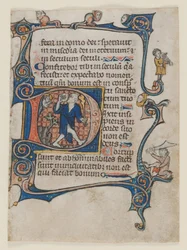 fera in domo dei speraui
in misericordia dei in eternum et
in seculum seculi
Confitebor tibi in seculum quia
fecisti et expectabo nomen
tuum qm bonum est in conspe
ctu sancto
rum tuo
rum
ixit insi
piens in
corde suo
non est
deus
sunt et abominabiles facti
sunt in iniquitatibus non est
qui faciat bonum